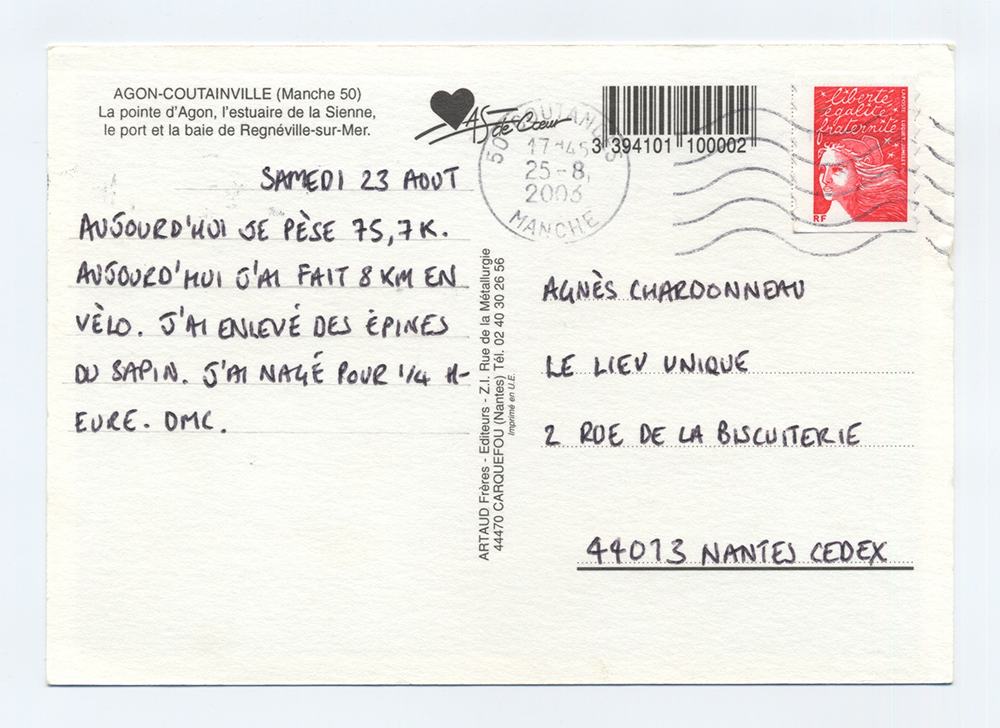 AGON-COUTAINVILLE (Manche 50)
La pointe d'Agon, l'estuaire de la Sienne,
le port et la baie de Regnéville-sur-Mer.
AS de Cœur
3 394101 100002
50 COUTANCES
17H45
25-8,
2003
MANCHE
liberté
égalité
fraternité
LA POSTE
LUQUET JUMELET
RF
SAMEDI 23 AOUT
AUJOURD'HUI JE PÈSE 75,7K.
AUJOURD'HUI J'AI FAIT 8 KM EN
VÈLO. J'AI ENLEVÉ DES ÉPINES
DU SAPIN. J'AI NAGÉ POUR 1/4 H-
EURE. DMC.
ARTAUD Frères - Editeurs - Z.I. Rue de la Métallurgie
44470 CARQUEFOU (Nantes) Tél. 02 40 30 26 56
Imprimé en U.E.
AGNÈS CHARDONNEAU
LE LIEU UNIQUE
2 RUE DE LA BISCUITERIE
44013 NANTES CEDEX